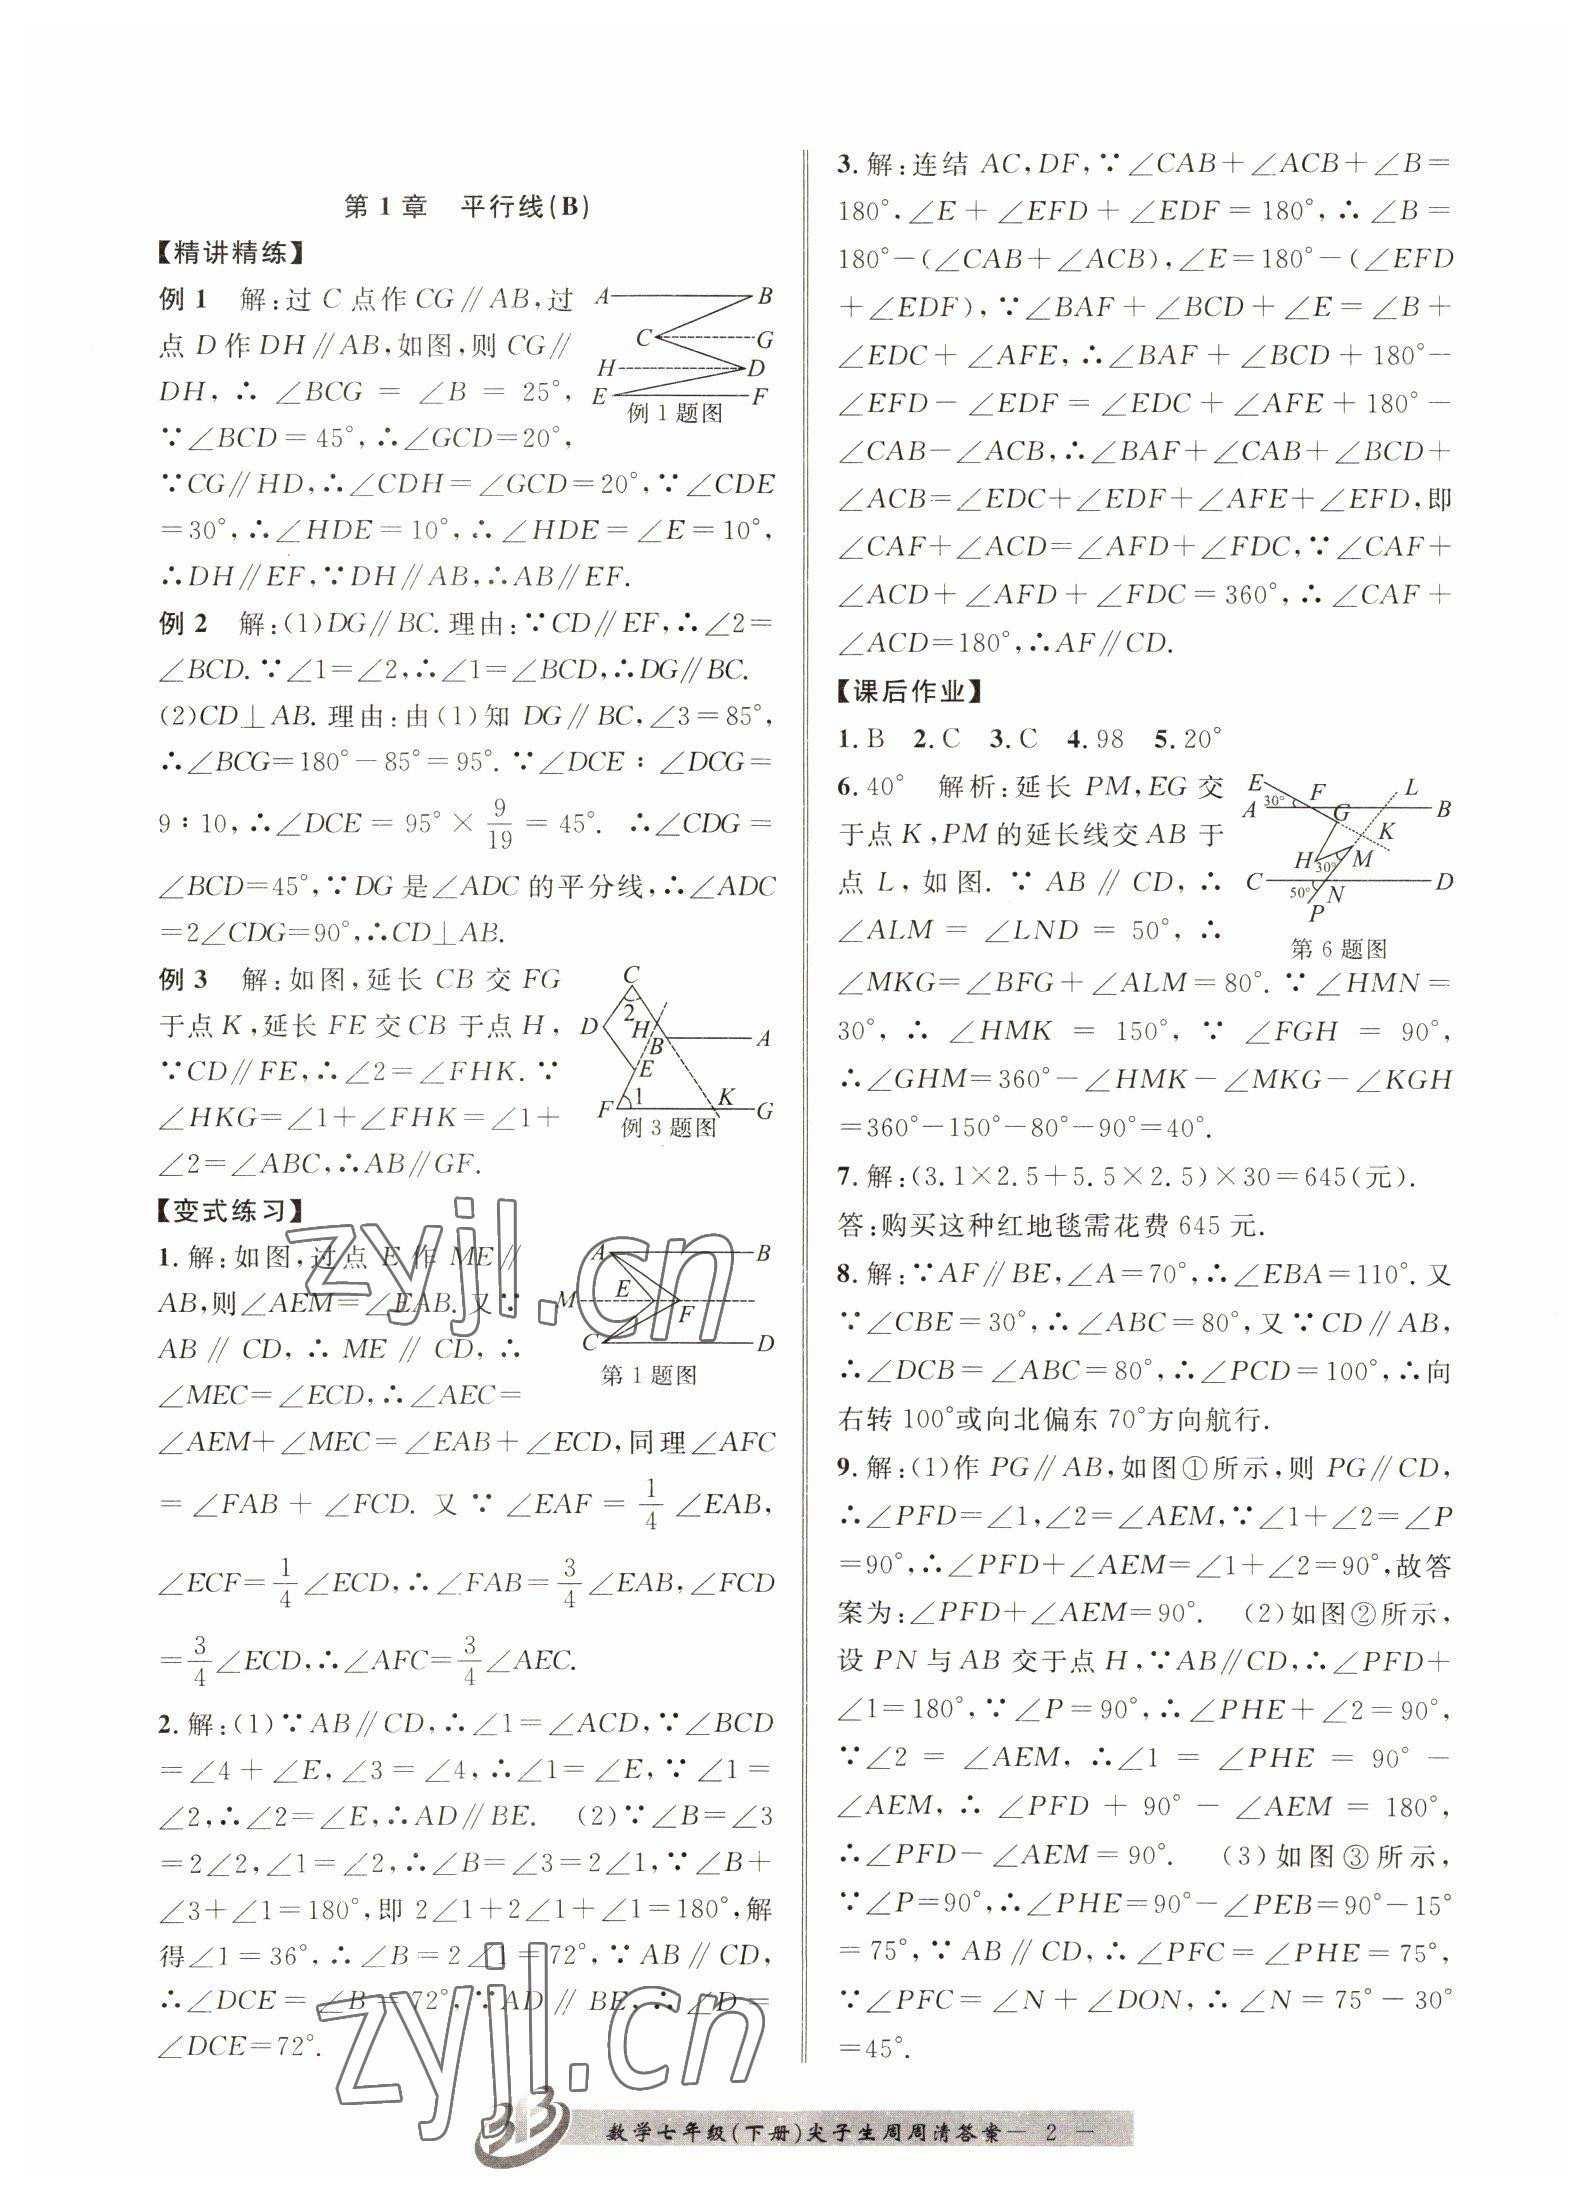 第 1 章　平行线(B)
【精讲精练】
例 1　解:过 C 点作 CG∥AB,过
点 D 作 DH∥AB,如图,则 CG∥
DH, ∴ ∠BCG = ∠B = 25°,
∵∠BCD=45°,∴∠GCD=20°,
A B C G H D E F
例 1 题图
∵CG∥HD,∴∠CDH=∠GCD=20°,∵∠CDE
=30°,∴∠HDE=10°,∴∠HDE=∠E=10°,
∴DH∥EF,∵DH∥AB,∴AB∥EF.
例 2　解:(1)DG∥BC.理由:∵CD∥EF,∴∠2=
∠BCD.∵∠1=∠2,∴∠1=∠BCD,∴DG∥BC.
(2)CD⊥AB.理由:由(1)知 DG∥BC,∠3=85°,
∴∠BCG=180°-85°=95°.∵∠DCE∶∠DCG=
9∶10,∴∠DCE=95°×9/19=45°. ∴∠CDG=
∠BCD=45°,∵DG 是∠ADC 的平分线,∴∠ADC
=2∠CDG=90°,∴CD⊥AB.
例 3　解:如图,延长 CB 交 FG
于点 K,延长 FE 交 CB 于点 H,
∵CD∥FE,∴∠2=∠FHK.∵
∠HKG=∠1+∠FHK=∠1+
∠2=∠ABC,∴AB∥GF.
C D 2 H B A E F 1 K G
例 3 题图
【变式练习】
1.解:如图,过点 E 作 ME∥
AB,则∠AEM=∠EAB.又∵
AB∥CD,∴ME∥CD,∴
∠MEC=∠ECD,∴∠AEC=
A B E M F C D
第 1 题图
∠AEM+∠MEC=∠EAB+∠ECD,同理∠AFC
=∠FAB+∠FCD. 又∵∠EAF=1/4∠EAB,
∠ECF=1/4∠ECD,∴∠FAB=3/4∠EAB,∠FCD
=3/4∠ECD,∴∠AFC=3/4∠AEC.
2.解:(1)∵AB∥CD,∴∠1=∠ACD,∵∠BCD
=∠4+∠E,∠3=∠4,∴∠1=∠E,∵∠1=
∠2,∴∠2=∠E,∴AD∥BE.　(2)∵∠B=∠3
=2∠2,∠1=∠2,∴∠B=∠3=2∠1,∵∠B+
∠3+∠1=180°,即 2∠1+2∠1+∠1=180°,解
得∠1=36°,∴∠B=2∠1=72°,∵AB∥CD,
∴∠DCE=∠B=72°,∵AD∥BE,∴∠D=
∠DCE=72°.
3.解:连结 AC,DF,∵∠CAB+∠ACB+∠B=
180°,∠E+∠EFD+∠EDF=180°,∴∠B=
180°-(∠CAB+∠ACB),∠E=180°-(∠EFD
+∠EDF),∵∠BAF+∠BCD+∠E=∠B+
∠EDC+∠AFE,∴∠BAF+∠BCD+180°-
∠EFD-∠EDF=∠EDC+∠AFE+180°-
∠CAB-∠ACB,∴∠BAF+∠CAB+∠BCD+
∠ACB=∠EDC+∠EDF+∠AFE+∠EFD,即
∠CAF+∠ACD=∠AFD+∠FDC,∵∠CAF+
∠ACD+∠AFD+∠FDC=360°,∴∠CAF+
∠ACD=180°,∴AF∥CD.
【课后作业】
1.B　2.C　3.C　4.98　5.20°
6.40°　解析:延长 PM,EG 交
于点 K,PM 的延长线交 AB 于
点 L,如图. ∵AB∥CD,∴
∠ALM=∠LND=50°,∴
E F L A 30° G B K H 30° M C 50° N D P
第 6 题图
∠MKG=∠BFG+∠ALM=80°.∵∠HMN=
30°,∴∠HMK=150°,∵∠FGH=90°,
∴∠GHM=360°-∠HMK-∠MKG-∠KGH
=360°-150°-80°-90°=40°.
7.解:(3.1×2.5+5.5×2.5)×30=645(元).
答:购买这种红地毯需花费 645 元.
8.解:∵AF∥BE,∠A=70°,∴∠EBA=110°.又
∵∠CBE=30°,∴∠ABC=80°,又∵CD∥AB,
∴∠DCB=∠ABC=80°,∴∠PCD=100°,∴向
右转 100°或向北偏东 70°方向航行.
9.解:(1)作 PG∥AB,如图①所示,则 PG∥CD,
∴∠PFD=∠1,∠2=∠AEM,∵∠1+∠2=∠P
=90°,∴∠PFD+∠AEM=∠1+∠2=90°,故答
案为:∠PFD+∠AEM=90°.　(2)如图②所示,
设 PN 与 AB 交于点 H,∵AB∥CD,∴∠PFD+
∠1=180°,∵∠P=90°,∴∠PHE+∠2=90°,
∵∠2=∠AEM,∴∠1=∠PHE=90°-
∠AEM,∴∠PFD+90°-∠AEM=180°,
∴∠PFD-∠AEM=90°.　(3)如图③所示,
∵∠P=90°,∴∠PHE=90°-∠PEB=90°-15°
=75°,∵AB∥CD,∴∠PFC=∠PHE=75°,
∵∠PFC=∠N+∠DON,∴∠N=75°-30°
=45°.
zyjl.cn
zyjl.cn
数学七年级(下册)尖子生周周清答案— 2 —